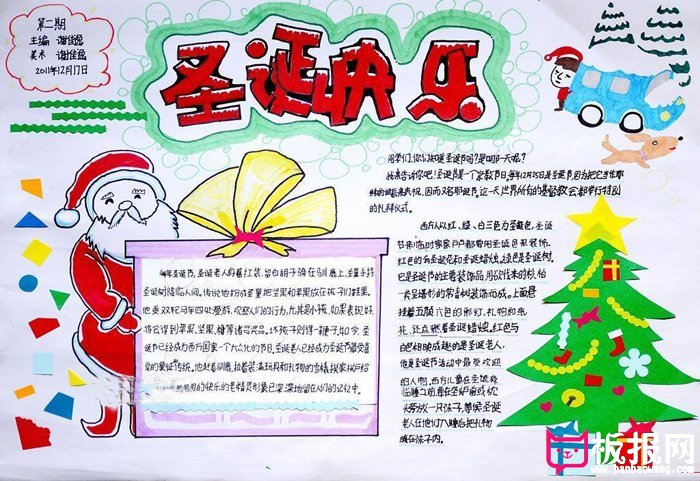 第二期
主编 谢佳逸
美术 谢佳逸
2011年12月17日
圣诞快乐
同学们,你们知道圣诞节吗?是哪一天呢?
我来告诉你吧!圣诞节是一个宗教节日,每年12月25日是圣诞节因为把它当作耶
稣的诞辰来庆祝,因而又名耶诞节。这一天世界所有的基督教会都举行特别
的礼拜仪式。
西方人以红、绿、白三色为圣诞色,圣诞
节来临时家家户户都要用圣诞色来装饰,
红色的有圣诞花和圣诞蜡烛,绿色是圣诞树,
它是圣诞节的主要装饰品,用砍伐来的杉、柏
一类呈塔形的常青树装饰而成。上面悬
挂着五颜六色的彩灯、礼物和纸
花,还点燃着圣诞蜡烛。红色与
白色相映成趣的是圣诞老人,
他是圣诞节活动中最受欢迎
的人物。西方儿童在圣诞夜
临睡之前,要在壁炉前或枕
头旁放一只袜子,等候圣诞
老人在他们入睡后把礼物
放在袜子内。
每年圣诞节,圣诞老人骑着
圣诞树降临人间,
他
将会得到苹果、坚果、糖等诸多奖品。坏孩子则得一鞭子。如今,圣
诞节已经成为西方国家一个大众化的节日,圣诞老人已经成为圣诞节最受喜
爱的象征、传统。他赶着驯鹿,拉着装满玩具和礼物的雪橇挨家挨户给
的快乐的老精灵形象已深深地留在人们的记忆中。
板报网
www.banbaowang.com